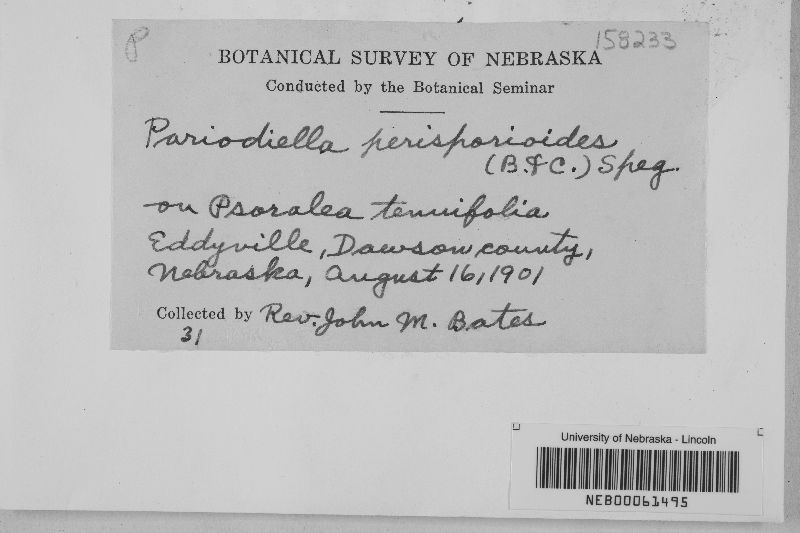 P
158233
BOTANICAL SURVEY OF NEBRASKA
Conducted by the Botanical Seminar
Pariodiella perisporioides
(B.&C.) Speg.
on Psoralea tenuifolia
Eddyville, Dawson county,
Nebraska, August 16, 1901
Collected by Rev. John M. Bates
31
University of Nebraska - Lincoln
NEB00061495